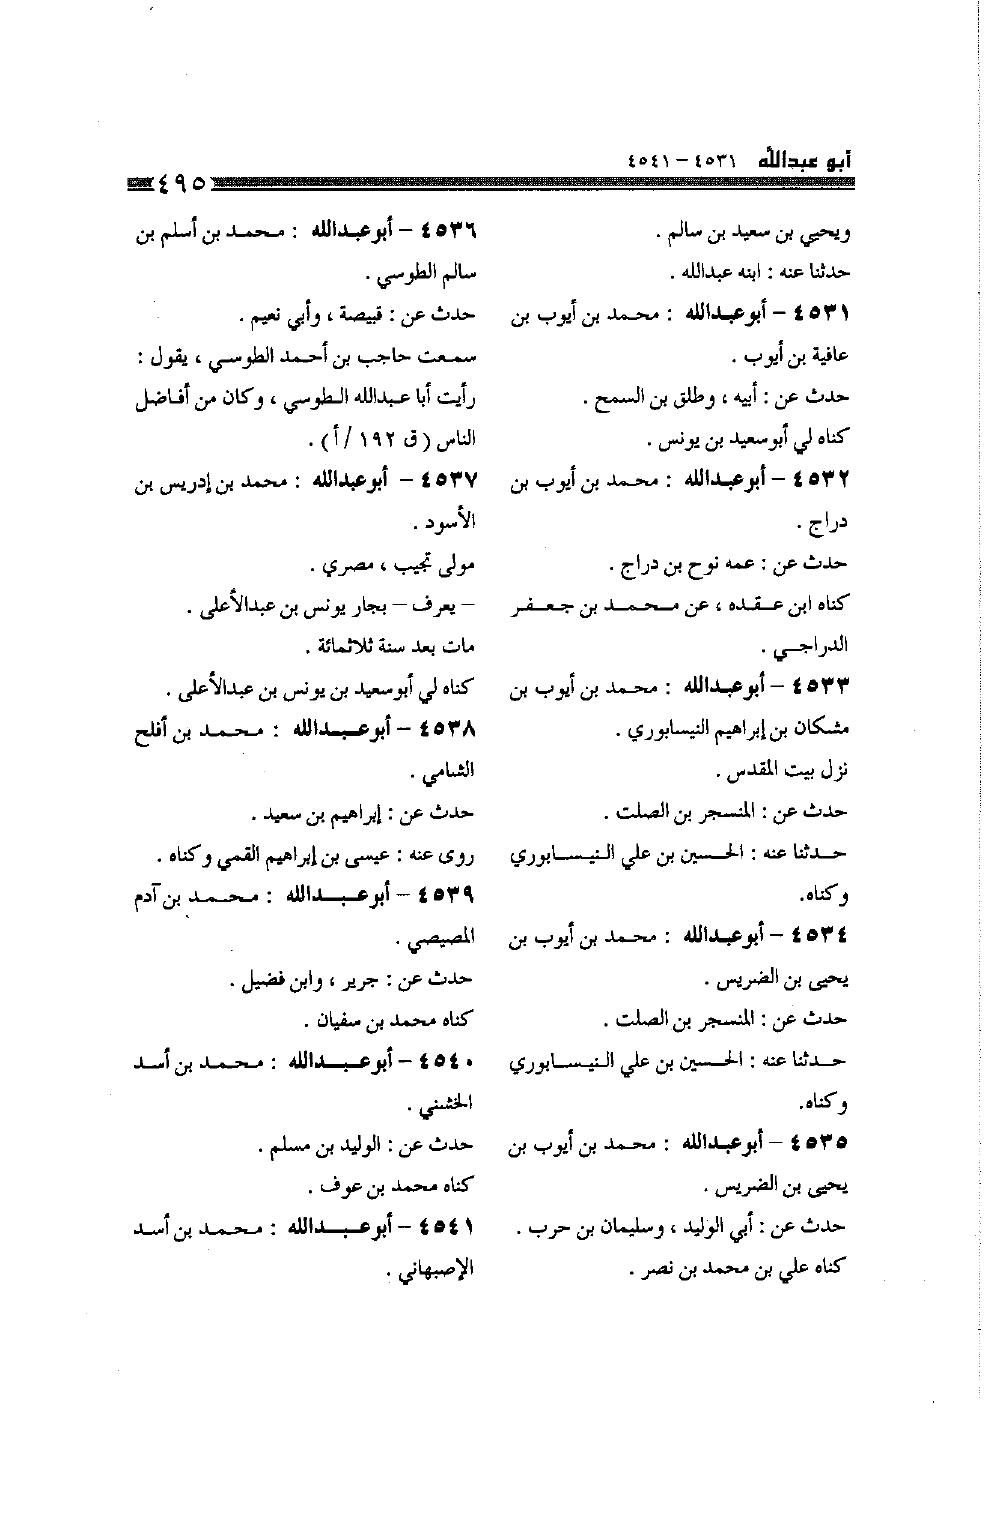 أبو عبدالله ٤٥٣١ – ٤٥٤١
٤٩٥
ويحيي بن سعيد بن سالم .
حدثنا عنه : ابنه عبدالله .
٤٥٣١ – أبوعبدالله : محمد بن أيوب بن
عافية بن أيوب .
حدث عن : أبيه ، وطلق بن السمح .
كناه لي أبوسعيد بن يونس .
٤٥٣٢ – أبوعبدالله : محمد بن أيوب بن
دراج .
حدث عن : عمه نوح بن دراج .
كناه ابن عقده ، عن محمد بن جعفر
الدراجي .
٤٥٣٣ – أبوعبدالله : محمد بن أيوب بن
مشكان بن إبراهيم النيسابوري .
نزل بيت المقدس .
حدث عن : المنسجر بن الصلت .
حدثنا عنه : الحسين بن علي النيسابوري
وكناه.
٤٥٣٤ – أبوعبدالله : محمد بن أيوب بن
يحيى بن الضريس .
حدث عن : المنسجر بن الصلت .
حدثنا عنه : الحسين بن علي النيسابوري
وكناه.
٤٥٣٥ – أبوعبدالله : محمد بن أيوب بن
يحيى بن الضريس .
حدث عن : أبي الوليد ، وسليمان بن حرب .
كناه علي بن محمد بن نصر .
٤٥٣٦ – أبوعبدالله : محمد بن أسلم بن
سالم الطوسي .
حدث عن : قبيصة ، وأبي نعيم .
سمعت حاجب بن أحمد الطوسي ، يقول :
رأيت أبا عبدالله الطوسي ، وكان من أفاضل
الناس (ق ١٩٢ /أ) .
٤٥٣٧ – أبوعبدالله : محمد بن إدريس بن
الأسود .
مولى تجيب ، مصري .
– يعرف – بجار يونس بن عبدالأعلى .
مات بعد سنة ثلاثمائة .
كناه لي أبوسعيد بن يونس بن عبدالأعلى .
٤٥٣٨ – أبوعبدالله : محمد بن أفلح
الشامي .
حدث عن : إبراهيم بن سعيد .
روى عنه : عيسى بن إبراهيم القمي وكناه .
٤٥٣٩ – أبوعبدالله : محمد بن آدم
المصيصي .
حدث عن : جرير ، وابن فضيل .
كناه محمد بن سفيان .
٤٥٤٠ – أبوعبدالله : محمد بن أسد
الخشني .
حدث عن : الوليد بن مسلم .
كناه محمد بن عوف .
٤٥٤١ – أبوعبدالله : محمد بن أسد
الإصبهاني .